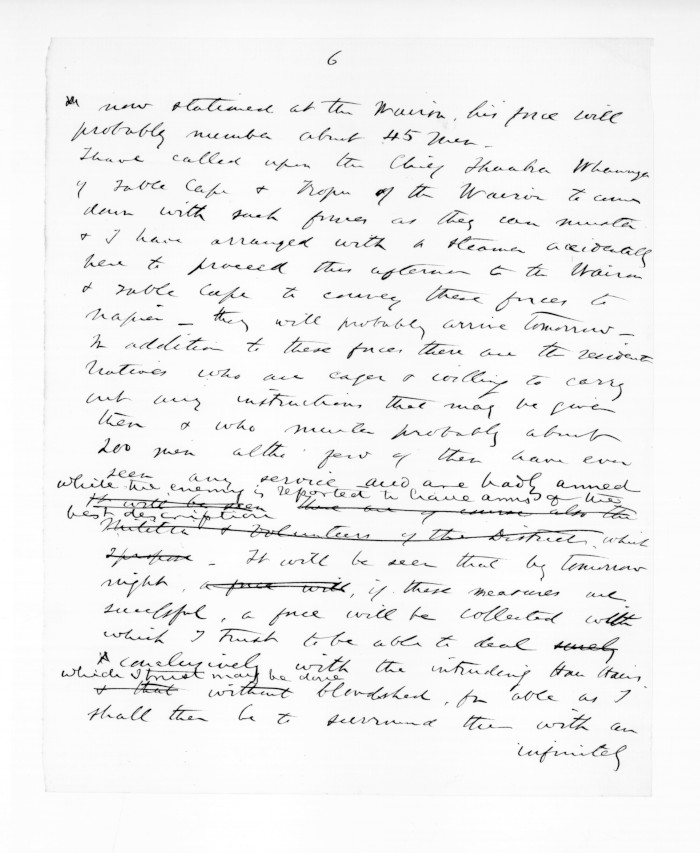 6
now stationed at the Wairoa, his force will
probably number about 45 Men -
I have called upon the Chief Ihaaka Whaanga
of Table Cape & Kopu of the Wairoa to come
down with such forces as they can muster
& I have arranged with a steamer accidentally
here to proceed this afternoon to the Wairoa
& Table Cape to convey these forces to
Napier - they will probably arrive tomorrow -
In addition to these forces there are the resident
Natives who are eager & willing to carry
out any instructions that may be given
them & who muster probably about
200 men altho' few of them have ever
seen any service and are badly armed
while the enemy is reported to have arms of the
It will be seen there are of course also the
best description
Militia & Volunteers of the District, which
I propose - It will be seen that by tomorrow
night, a force will, if these measures are
successful, a force will be collected with
which I trust to be able to deal surely
& conclusively with the intruding Hau Haus
which I trust may be done
& that without bloodshed, for able as I
shall then be to surround them with an
infinitely